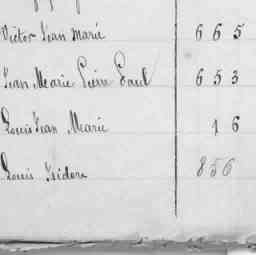 Victor Jean Marie 665
Jean Marie Pierre Paul 653
Louis Jean Marie 16
Louis Isidore 856